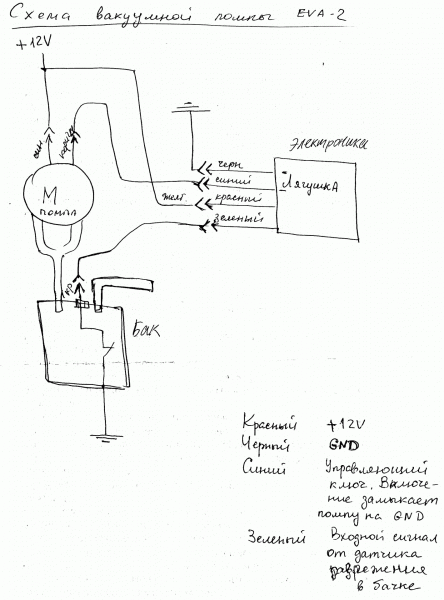 Схема вакуумной помпы EVA-2
+12V
син
коричн
М
помпа
черн
синий
желт.
красный
зеленый
Электроника
Лягушка
кр
Бак
Красный +12V
Черный GND
Синий Управляющий
ключ. Включе-
ние замыкает
помпу на GND
Зеленый Входной сигнал
от датчика
разрежения
в бачке